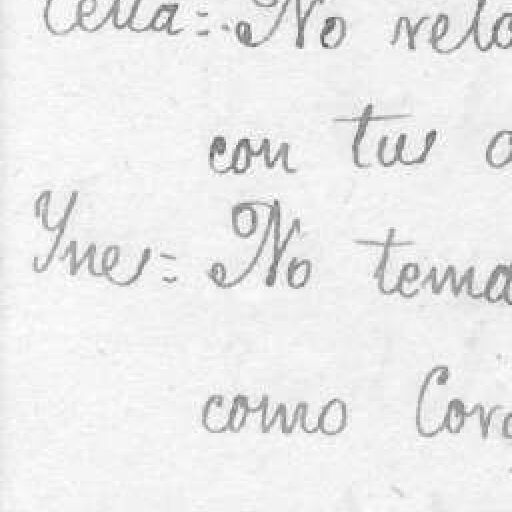 Celia=. No relo
con tus o
Ynes= No tema
como Cord